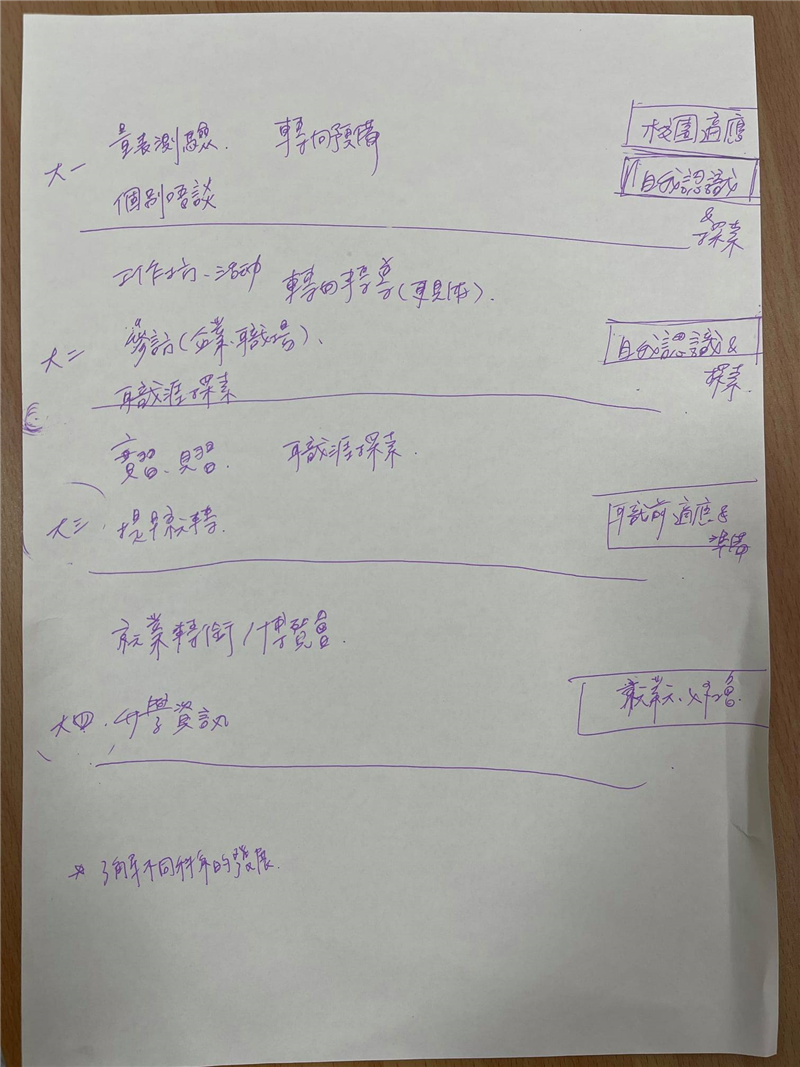 量表測驗. 轉向預備
校園適應
大一
自我認識
個別晤談
&
探索
工作坊、活动
轉向輔導(具体).
大二
參訪(企業.職場).
自我認識&
探索.
職涯探索
實習、見習.
職涯探索.
大三
職前適應&
準備
就業轉銜/博覽會.
大四.
升學資訊
* 了解不同科系的發展.